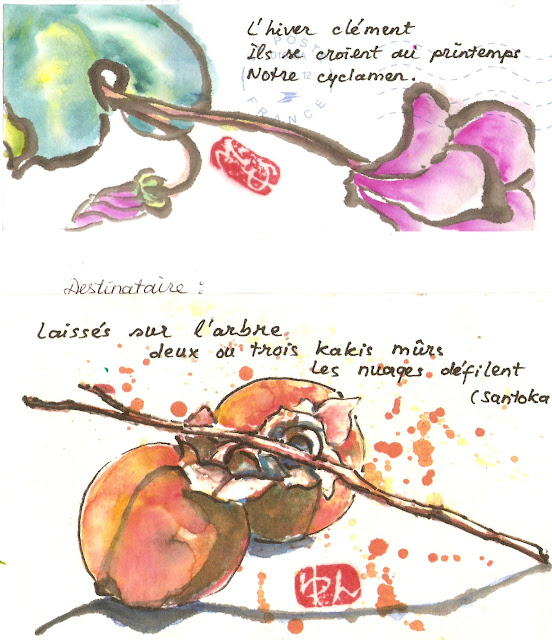 L'hiver clément
Ils se croient au printemps
Notre cyclamen.
POSTE
12
FRANCE
Destinataire :
Laissés sur l'arbre
deux ou trois kakis mûrs
les nuages défilent
(Santoka